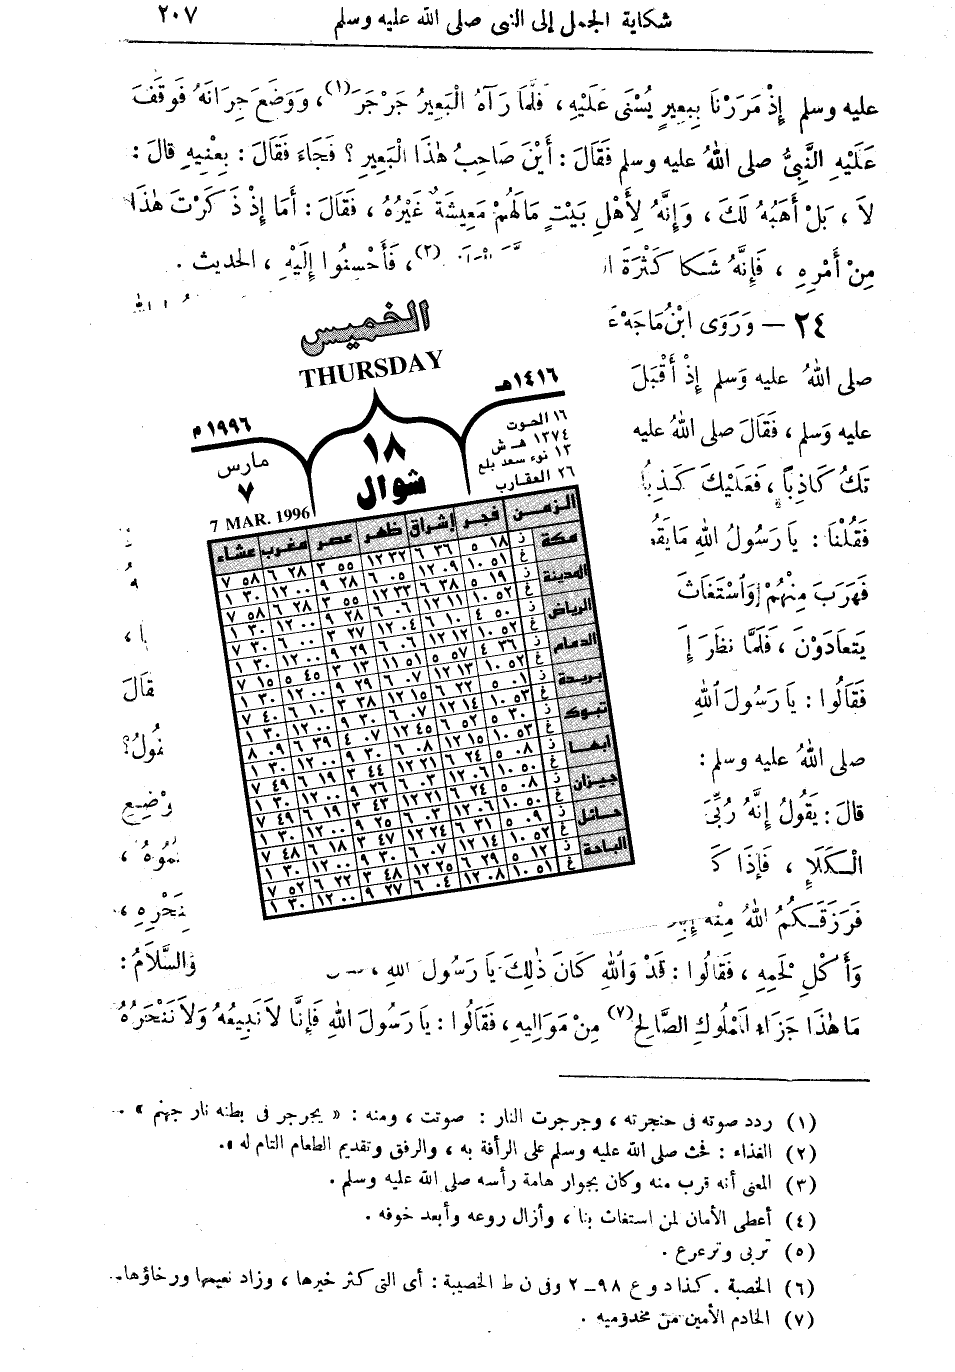 شكاية الجمل إلى النبى صلى الله عليه وسلم ٢٠٧
عليه وسلم إِذْ مَرَرْنَا بِبَعِيرٍ يُسْنَى عَلَيْهِ ، فَلَمَّا رَآهُ الْبَعِيرُ جَرْجَرَ(١) ، وَوَضَعَ جِرَانَهُ فَوَقَفَ
عَلَيْهِ النَّبِيُّ صلى اللهُ عليه وسلم فَقَالَ : أَيْنَ صَاحِبُ هٰذَا الْبَعِيرِ ؟ فَجَاءَ فَقَالَ : بِعْنِيهِ قالَ :
لَا ، بَلْ أَهَبُهُ لَكَ ، وَإِنَّهُ لِأَهْلِ بَيْتٍ مَالَهُمْ مَعِيشَةٌ غَيْرُهُ ، فَقَالَ : أَمَا إِذْ ذَكَرْتَ هٰذَا
مِنْ أَمْرِهِ ، فَإِنَّهُ شَكَا كَثْرَةَ (٢) ، فَأَحْسِنُوا إِلَيْهِ ، الحديث .
٢٤ — وَرَوَى ابْنُ مَاجَهْ
صلى اللهُ عليه وَسلم إِذْ أَقْبَلَ
عليه وَسلم ، فَقَالَ صلى اللهُ عليه
تَكُ كَاذِبًا ، فَعَلَيْكَ كَذِبُ
فَقُلْنَا : يَا رَسُولَ اللهِ مَا يَقُ
فَهَرَبَ مِنْهُمْ وَاسْتَغَاثَ
يَتَعَادَوْنَ ، فَلَمَّا نَظَرَ إِ
قَالَ
فَقَالُوا : يَا رَسُولَ اللهِ
صلى اللهُ عليه وسلم :
قُولُ؟
قالَ : يَقُولُ إِنَّهُ رُبِّيَ
وْضِعِ
الْكَلَإِ ، فَإِذَا كَ
فَرَزَقَكُمُ اللهُ مِنْهُ إِبِ
نَحْرِهِ ،
وَأَكْلِ لَحْمِهِ ، فَقَالُوا : قَدْ وَاللهِ كَانَ ذٰلِكَ يَا رَسُولَ اللهِ ،
وَالسَّلَامُ :
مَا هٰذَا جَزَاءُ الْمَمْلُوكِ الصَّالِحِ(٧) مِنْ مَوَالِيهِ ، فَقَالُوا : يَا رَسُولَ اللهِ فَإِنَّا لَا نَبِيعُهُ وَلَا نَنْحَرُهُ
الخميس
THURSDAY
١٤١٦هـ
١٩٩٦م
١٦ الحوت
١٣٧٤ هـ ش
١٣ نوء سعد بلع
٢٦ العقارب
١٨
شوال
مارس
٧
7 MAR. 1996
الزمن فجر إشراق ظهر عصر مغرب عشاء
مكة ز ١٨ ٥ ٣٦ ٦ ٣٢ ١٢ ٥٥ ٣ ٢٨ ٦ ٥٨ ٧
غ ٥١ ١٠ ٠٩ ١٢ ٠٥ ٦ ٢٨ ٩ ٠٠ ١٢ ٣٠ ١
المدينة ز ١٩ ٥ ٣٨ ٦ ٣٣ ١٢ ٥٥ ٣ ٢٨ ٦ ٥٨ ٧
غ ٥٢ ١٠ ١١ ١٢ ٠٦ ٦ ٢٨ ٩ ٠٠ ١٢ ٣٠ ١
الرياض ز ٥٠ ٤ ١٠ ٦ ٠٤ ١٢ ٢٧ ٣ ٠٠ ٦ ٣٠ ٧
غ ٥٢ ١٠ ١٢ ١٢ ٠٦ ٦ ٢٩ ٩ ٠٠ ١٢ ٣٠ ١
الدمام ز ٣٦ ٤ ٥٧ ٥ ٥١ ١١ ١٣ ٣ ٤٥ ٥ ١٥ ٧
غ ٥٢ ١٠ ١٣ ١٢ ٠٧ ٦ ٢٩ ٩ ٠٠ ١٢ ٣٠ ١
بريدة ز ٠١ ٥ ٢٢ ٦ ١٥ ١٢ ٣٨ ٣ ١٠ ٦ ٤٠ ٧
غ ٥٣ ١٠ ١٤ ١٢ ٠٧ ٦ ٣٠ ٩ ٠٠ ١٢ ٣٠ ١
تبوك ز ٣٠ ٥ ٥٢ ٦ ٤٥ ١٢ ٠٧ ٤ ٣٩ ٦ ٠٩ ٨
غ ٥٣ ١٠ ١٥ ١٢ ٠٨ ٦ ٣٠ ٩ ٠٠ ١٢ ٣٠ ١
ابها ز ٠٨ ٥ ٢٤ ٦ ٢١ ١٢ ٤٤ ٣ ١٩ ٦ ٤٩ ٧
غ ٥٠ ١٠ ٠٦ ١٢ ٠٣ ٦ ٢٦ ٩ ٠٠ ١٢ ٣٠ ١
جيزان ز ٠٨ ٥ ٢٤ ٦ ٢١ ١٢ ٤٣ ٣ ١٩ ٦ ٤٩ ٧
غ ٥٠ ١٠ ٠٦ ١٢ ٠٣ ٦ ٢٥ ٩ ٠٠ ١٢ ٣٠ ١
حائل ز ٠٩ ٥ ٣١ ٦ ٢٤ ١٢ ٤٧ ٣ ١٨ ٦ ٤٨ ٧
غ ٥٢ ١٠ ١٤ ١٢ ٠٧ ٦ ٣٠ ٩ ٠٠ ١٢ ٣٠ ١
الباحة ز ١٢ ٥ ٢٩ ٦ ٢٥ ١٢ ٤٨ ٣ ٢٢ ٦ ٥٢ ٧
غ ٥١ ١٠ ٠٨ ١٢ ٠٤ ٦ ٢٧ ٩ ٠٠ ١٢ ٣٠ ١
(١) ردد صوته فى حنجرته ، وجرجرت النار : صوتت ، ومنه : « يجرجر فى بطنه نار جهنم » .
(٢) الغذاء : فحث صلى الله عليه وسلم على الرأفة به ، والرفق وتقديم الطعام التام له .
(٣) المعنى أنه قرب منه وكان بجوار هامة رأسه صلى الله عليه وسلم .
(٤) أعطى الأمان لمن استغاث بنا ، وأزال روعه وأبعد خوفه .
(٥) تربى وترعرع .
(٦) الخصبة . كذا د و ع ٩٨ــ ٢ وفى ن ط الخصيبة : أى التى كثر خيرها ، وزاد نعيمها ورخاؤها.
(٧) الخادم الأمين من مخدوميه .